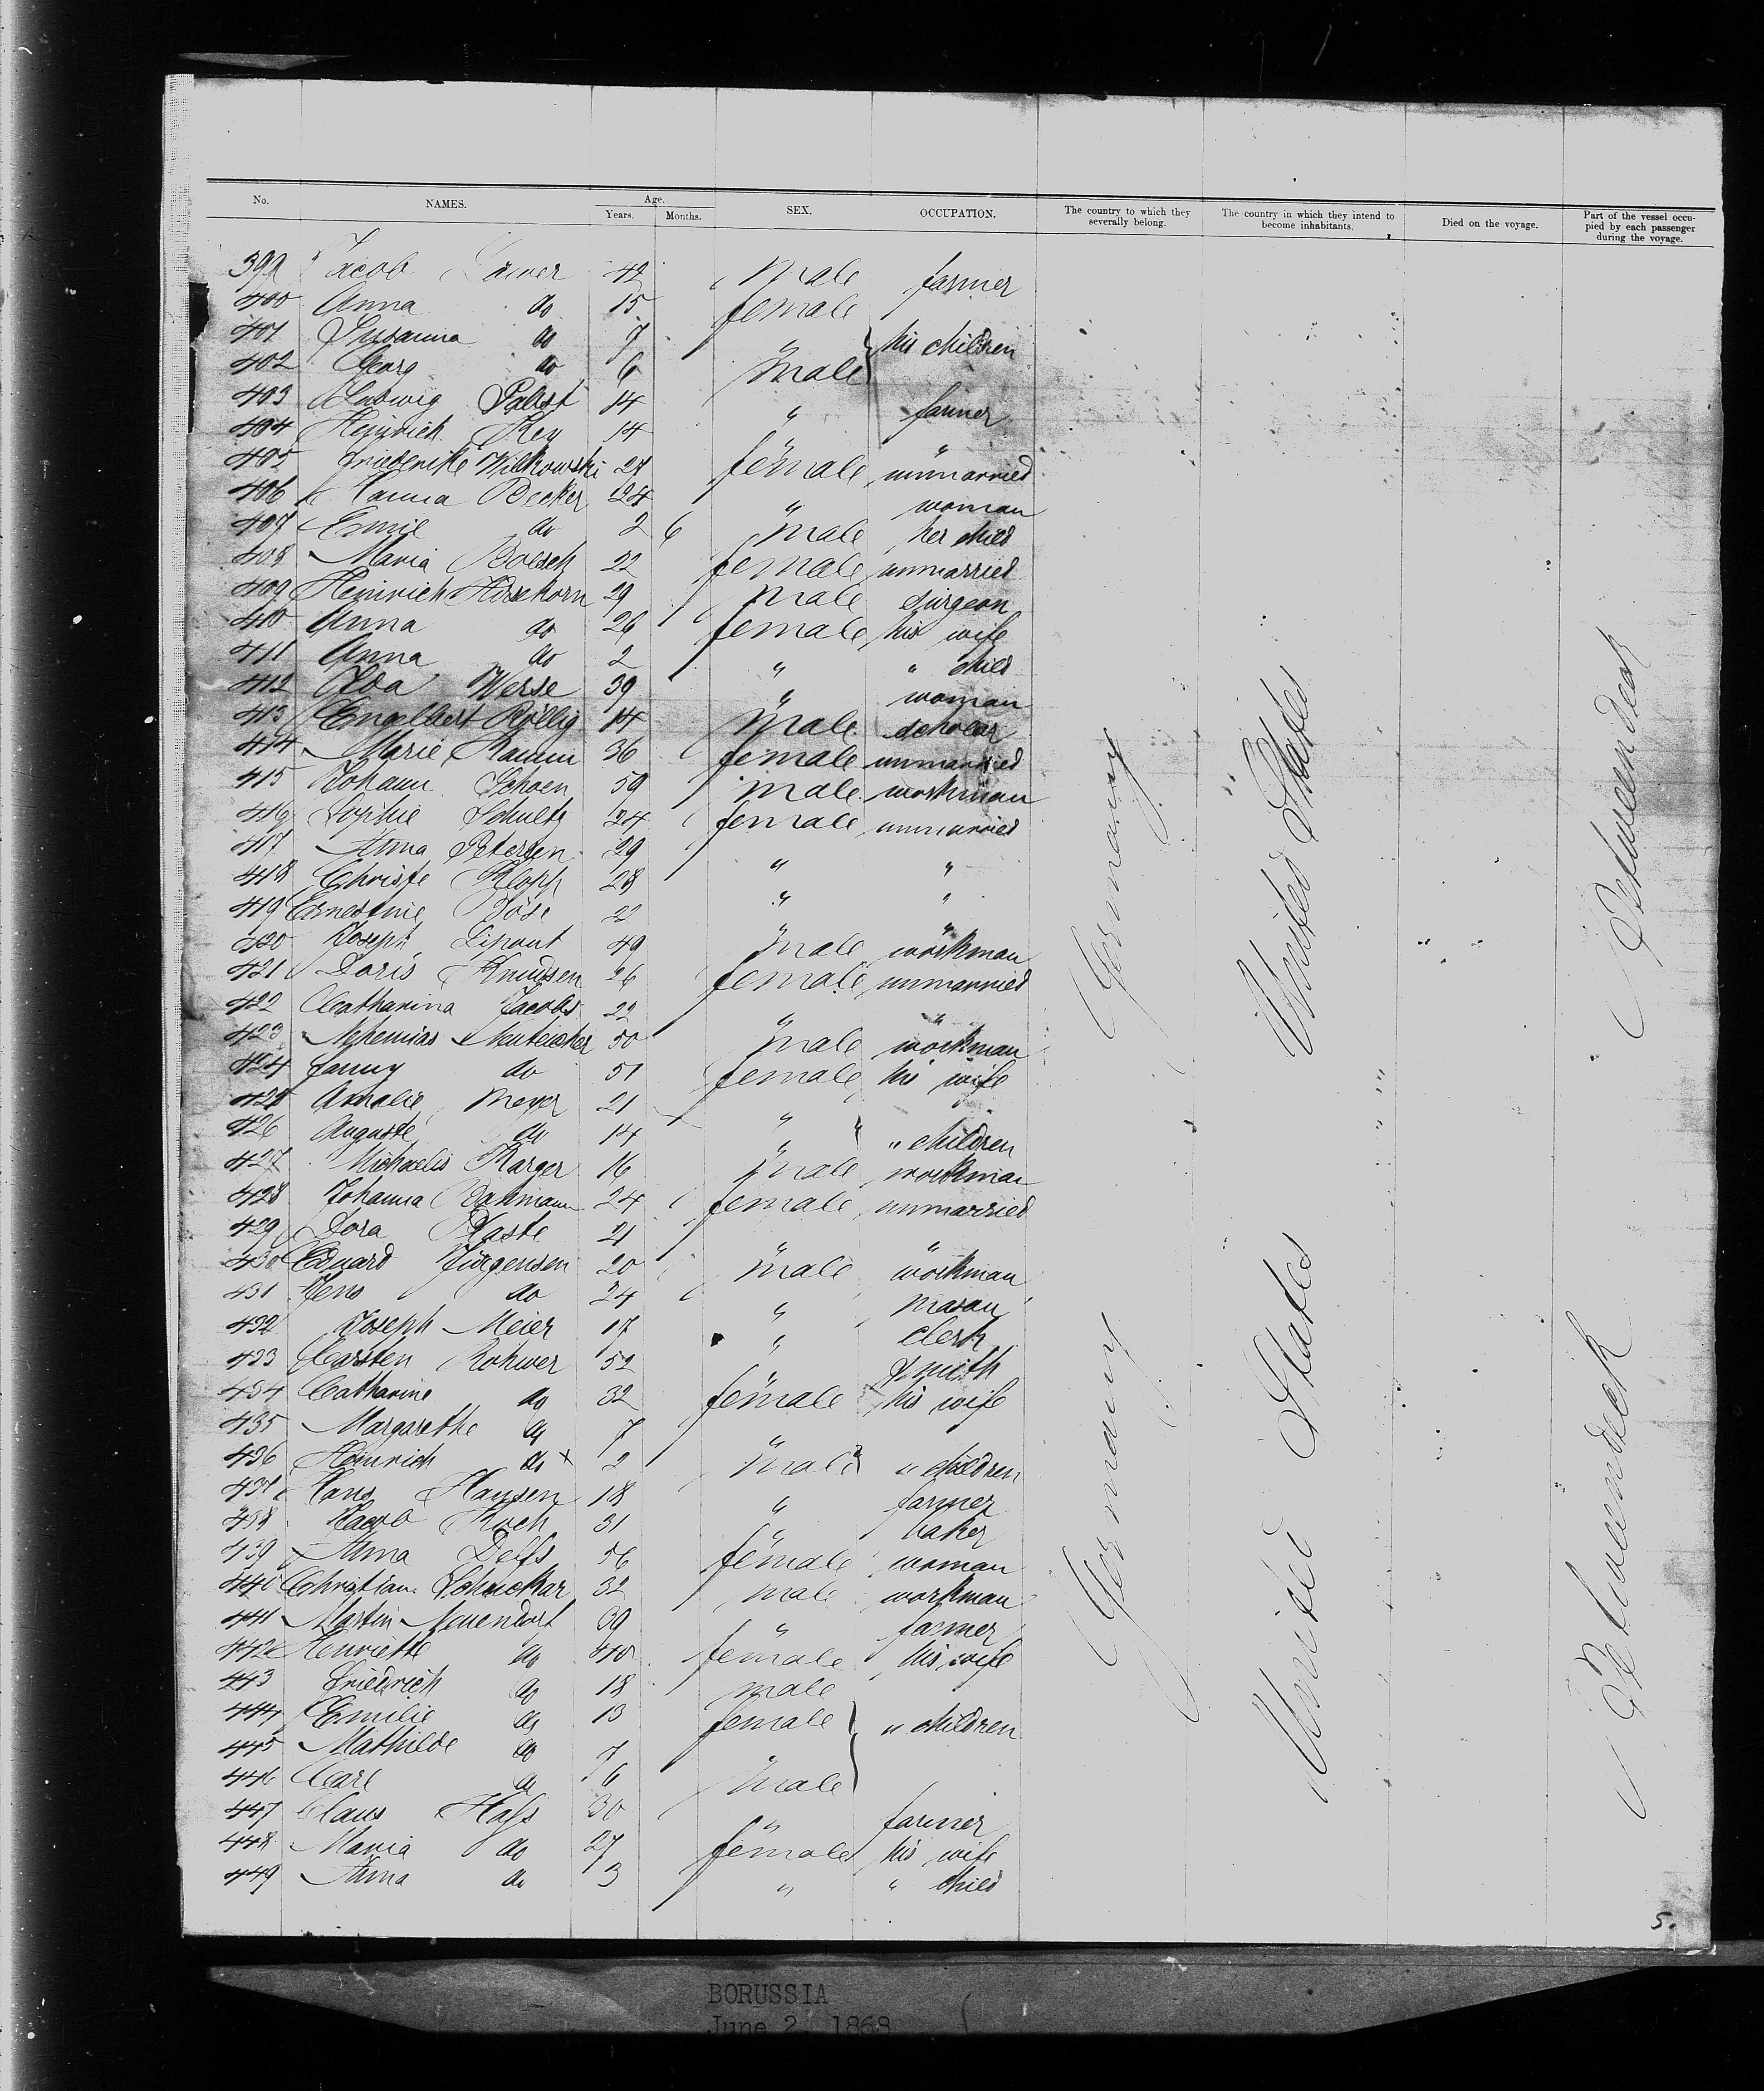 No. NAMES. Age. Years. Months. SEX. OCCUPATION. The country to which they severally belong. The country in which they intend to become inhabitants. Died on the voyage. Part of the vessel occupied by each passenger during the voyage.
399 Jacob 42 male farmer
400 Anna do 15 female
401 Susanna do 9 " } his children
402 Georg do 6 male
403 Ludwig Pabst 14 " farmer
404 Heinrich Rey 14 " "
405 Friederike Wilkowski 27 female unmarried
406 Hanna Becker 24 " woman
407 Emil do 2 6 male her child
408 Maria Boesch 22 female unmarried
409 Heinrich 29 male surgeon
410 Anna do 26 female his wife
411 Anna do 2 " " child
412 Ida Werse 39 " woman
413 Engelbert Röllig 14 male scholar
414 Marie Ramm 36 female unmarried
415 Johann Schoen 59 male workman
416 Sophie Schultz 24 female unmarried
417 Anna Petersen 29 " "
418 Christe Klopp 28 " "
419 Ernestine Böse 22 " "
420 Joseph Lipout 49 male workman
421 Doris Knudsen 26 female unmarried
422 Catharina Jacobs 22 " "
423 Nehemias 50 male workman
424 Fanny do 51 female his wife
425 Amalie Meyer 21 " "
426 Auguste do 14 " " children
427 Michaelis Karger 16 male workman
428 Johanna Bahmann 24 female unmarried
429 Dora Plaste 21 " "
430 Eduard Jürgensen 20 male workman
431 Jens do 24 " mason
432 Joseph Meier 17 " clerk
433 Carsten Rohwer 52 " smith
434 Catharine do 32 female his wife
435 Margarethe do 7 "
436 Heinrich do x 2 male } " children
437 Hans Hansen 18 " farmer
438 Jacob Koch 31 " baker
439 Anna Delfs 56 female woman
440 Christian Schuckar 32 male workman
441 Martin Neuendorf 39 " farmer
442 Henriette do 40 female his wife
443 Friedrich do 18 male
444 Emilie do 13 female } " children
445 Mathilde do 7 "
446 Carl do 6 male
447 Claus Hass 30 " farmer
448 Maria do 27 female his wife
449 Anna do 3 " " child
Germany United States Betweendeck
Germany United States Betweendeck
5.
BORUSSIA
June 2, 1868